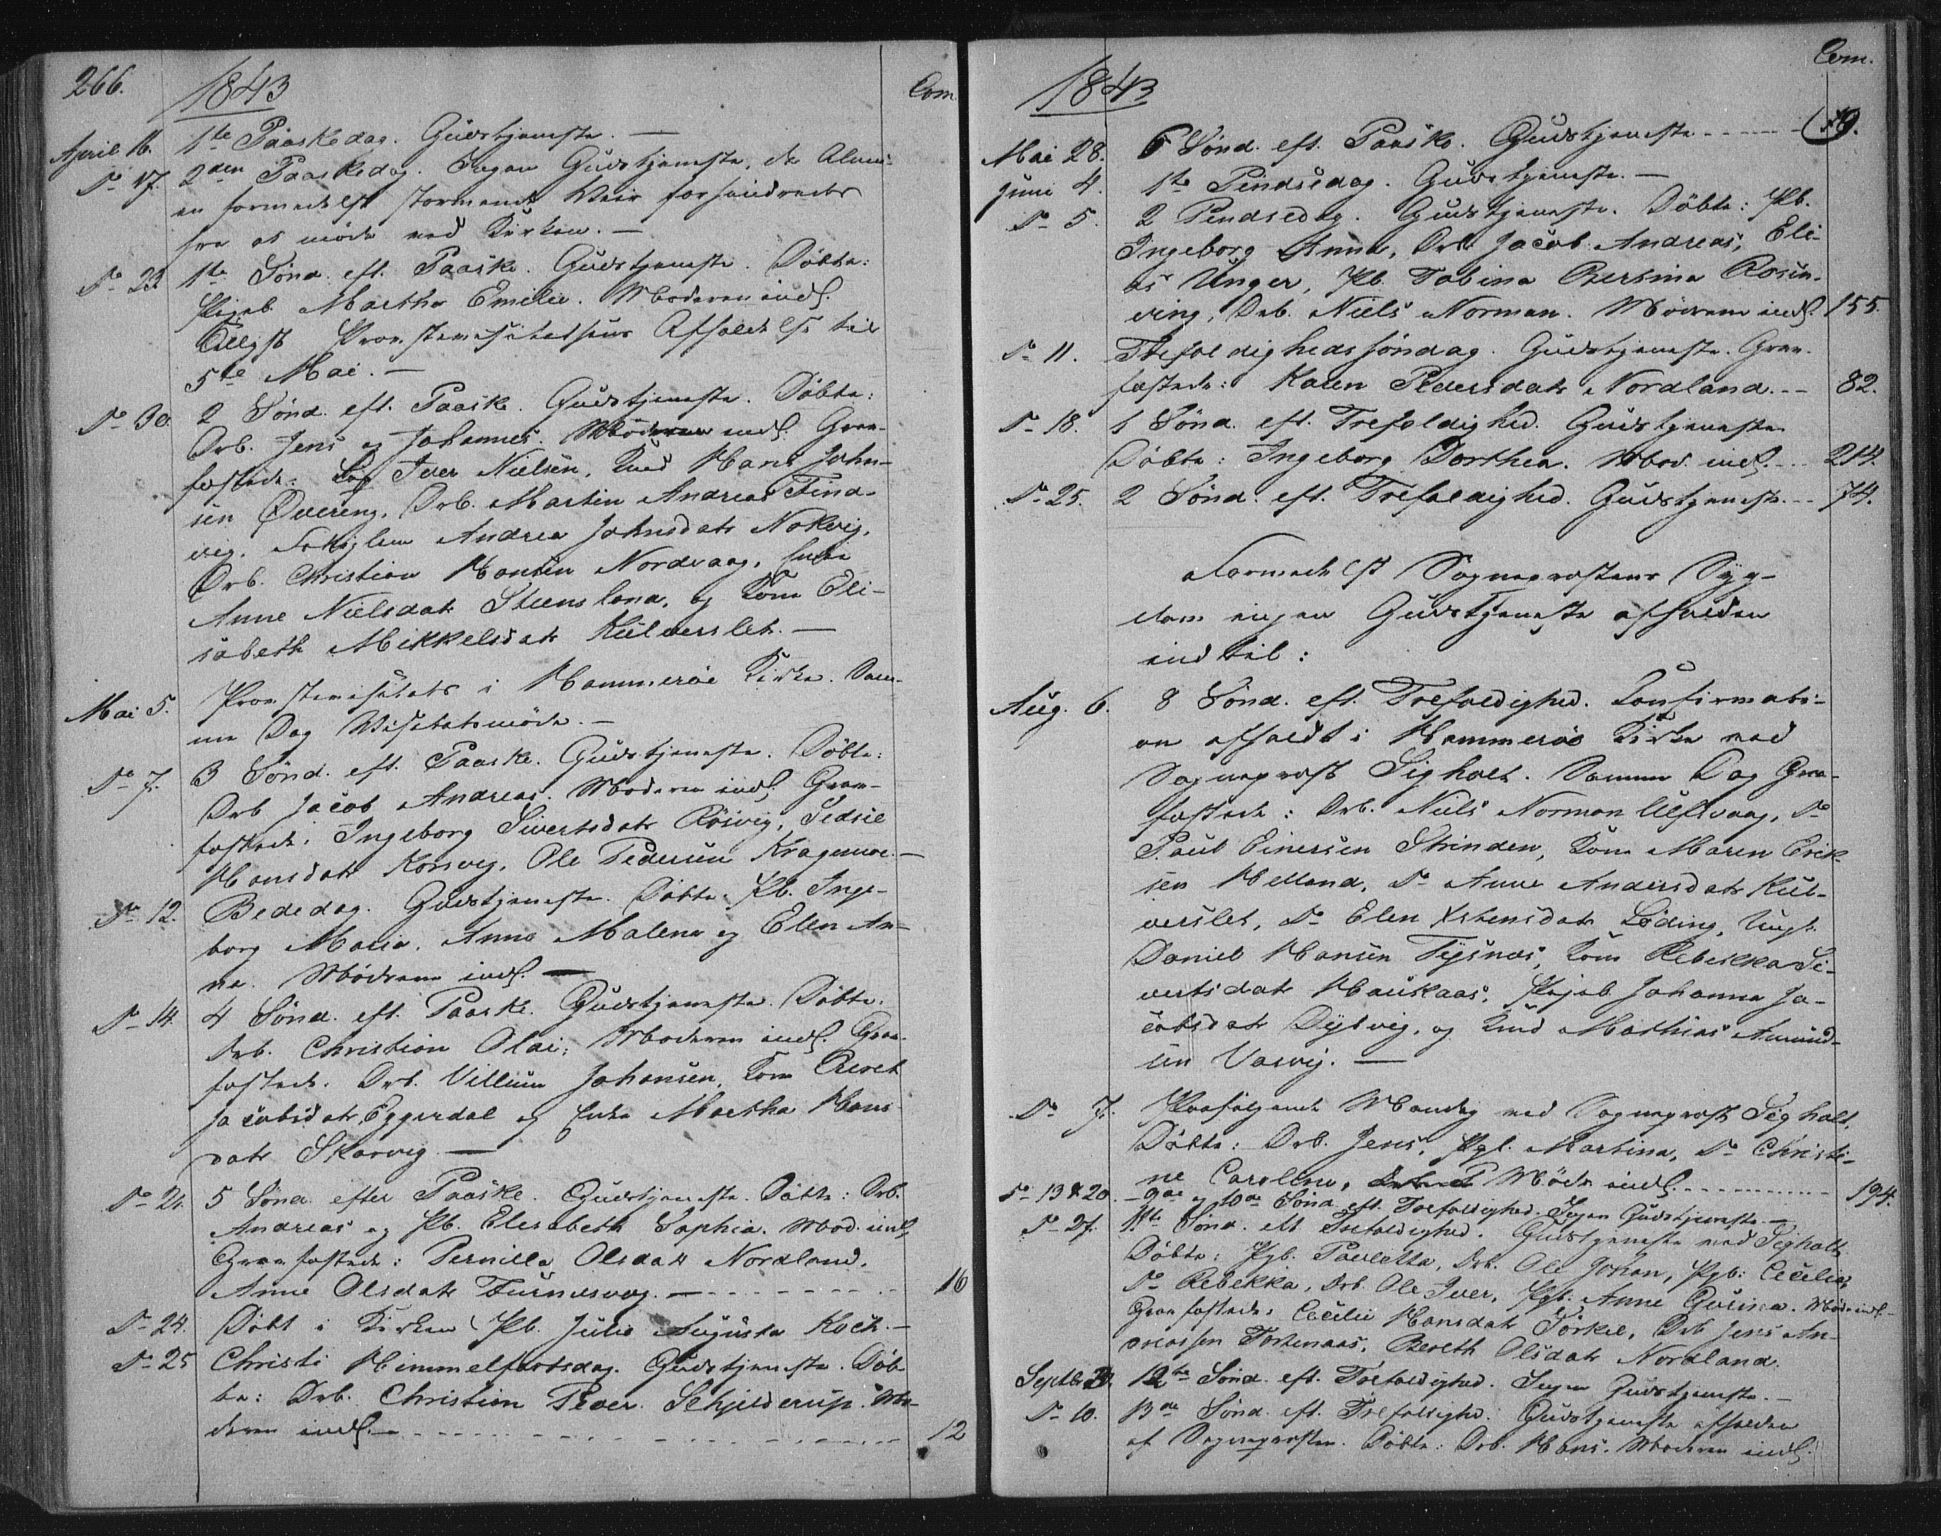 266.
1843
Com.
April 16. 1te Paaskedag. Gudstjeneste. —
Do 17. 2den Paaskedag. Ingen Gudstjeneste, da Almu-
en formedelst stormende Veir forhindredes
fra at møde ved Kirken. —
Do 23. 1te Sønd. eft. Paaske. Gudstjeneste. Døbte:
Pigeb. Martha Emilie. Moderen indl.
Tillyst Provstevisitatsens Afholdelse til
5te Mai. —
Do 30. 2 Sønd. eft. Paaske. Gudstjeneste. Døbte:
Drb. Jens og Johannes. Mødrene indl. Grav-
fæstede: Iver Nielsen, Hans John-
sen Øvereng, Drb. Martin Andreas Find-
vig, Andrea Johnsdatr Nakvig,
Drb. Christian Hansen Nordvaag, Enke
Anne Nielsdatr Steensland, og Kone Eli-
sabeth Mikkelsdatr Kulverslet. —
Mai 5. Provstevisitats i Hammerøe Kirke. Sam-
me Dag Visitatsmøde. —
Do 7. 3 Sønd. eft. Paaske. Gudstjeneste. Døbte:
Drb Jacob Andreas. Moderen indl. Grav-
fæstede: Ingeborg Sivertsdatr Røsvig, Sidsel
Hansdatr Korsvig, Ole Pedersen Kragemoe. —
Do 12. Bededag. Gudstjeneste. Døbte: Pb. Inge-
borg Maria, Anne Malena og Elen An-
na. Mødrene indl. —
Do 14. 4 Sønd. eft. Paaske. Gudstjeneste. Døbte:
Drb. Christian Olai; Moderen indl. Grav-
fæstede: Drb. Villium Johansen, Kone Beret
Jacobsdatr Eggerdal og Enke Martha Hans-
datr Skarvig. —
Do 21. 5 Sønd. efter Paaske. Gudstjeneste. Døbte: Drb.
Andreas og Pb. Elisabeth Sophia. Mød. indl.
Gravfæstede: Pernilla Olsdatr Nordland,
Anne Olsdatr Furnesvog. — 16
Do 24. Døbt i Kirken Pb. Julie Augusta Koch. —
Do 25 Christi Himmelfartsdag. Gudstjeneste. Døb-
te: Drb. Christian Peder Schjelderup. Mo-
deren indl. — 12
1843
Com.
Mai 28. 6 Sønd. eft. Paaske. Gudstjeneste
Juni 4. 1te Pindsedag. Gudstjeneste. —
Do 5. 2 Pindsedag. Gudstjeneste. Døbte: Pb.
Ingeborg Anna, Drb. Jacob Andreas, Eli-
as Unger, Pb. Tabina Bertina Rosen-
ving, Drb. Niels Norman. Mødrene indl. 155.
Do 11. Trefoldighedssøndag. Gudstjeneste. Grav-
fæstede: Karen Pedersdatr Nordland. — 82.
Do 18. 1 Sønd. eft. Trefoldighed. Gudstjeneste
Døbte: Ingeborg Dorthea. Mod. indl. 214.
Do 25. 2 Sønd. eft. Trefoldighed. Gudstjeneste 74.
Formedelst Sognepræstens Syg-
dom ingen Gudstjeneste afholden
indtil:
Aug. 6. 8 Sønd. eft. Trefoldighed. Confirmati-
on afholdt i Hammerøe Kirke ved
Sognepræst Sigholt. Samme Dag Grav-
fæstede: Drb. Niels Norman Ulsvaag, Do
Paul Einersen Strinden, Kone Maren Erik-
sen Helland, Do Anne Andersdatr Kul-
verslet, Do Elen Løding, Ungk.
Daniel Hansen Tysnæs, Kone Rebekka Si-
vertsdatr Hauskaas, Pigeb. Johanna Ja-
cobsdatr Dybvig, og Mathias Amund-
sen Vasvig. —
Do 7. Paafølgende Mandag ved Sognepræst Sigholt,
Døbte: Drb. Jens, Pgb. Martina, Do Christi-
ne Carolina. Mødr. indl. 194.
Do 13 & 20. 9de og 10de Sønd. eft. Trefoldighed. Ingen Gudstjeneste. —
Do 27. 11te Sønd. eft. Trefoldighed. Gudstjeneste ved Sigholt,
Døbte: Pgb. Pauletta, Drb. Ole Johan, Pgb. Cecilia,
Do Rebekka, Drb. Ole Iver, Pgb. Anne Gurina. Mødr. indl. —
Gravfæstede: Cecilie Hansdatr Sørkil, Drb Jens An-
dreassen Tortenaas, Bereth Olsdatr Nordland.
Septbr 3. 12te Sønd. eft. Trefoldighed. Ingen Gudstjeneste. —
Do 10. 13de Sønd. eft. Trefoldighed. Gudstjeneste afholden
af Sognepræsten. Døbte: Drb. Hans. Moderen indl.